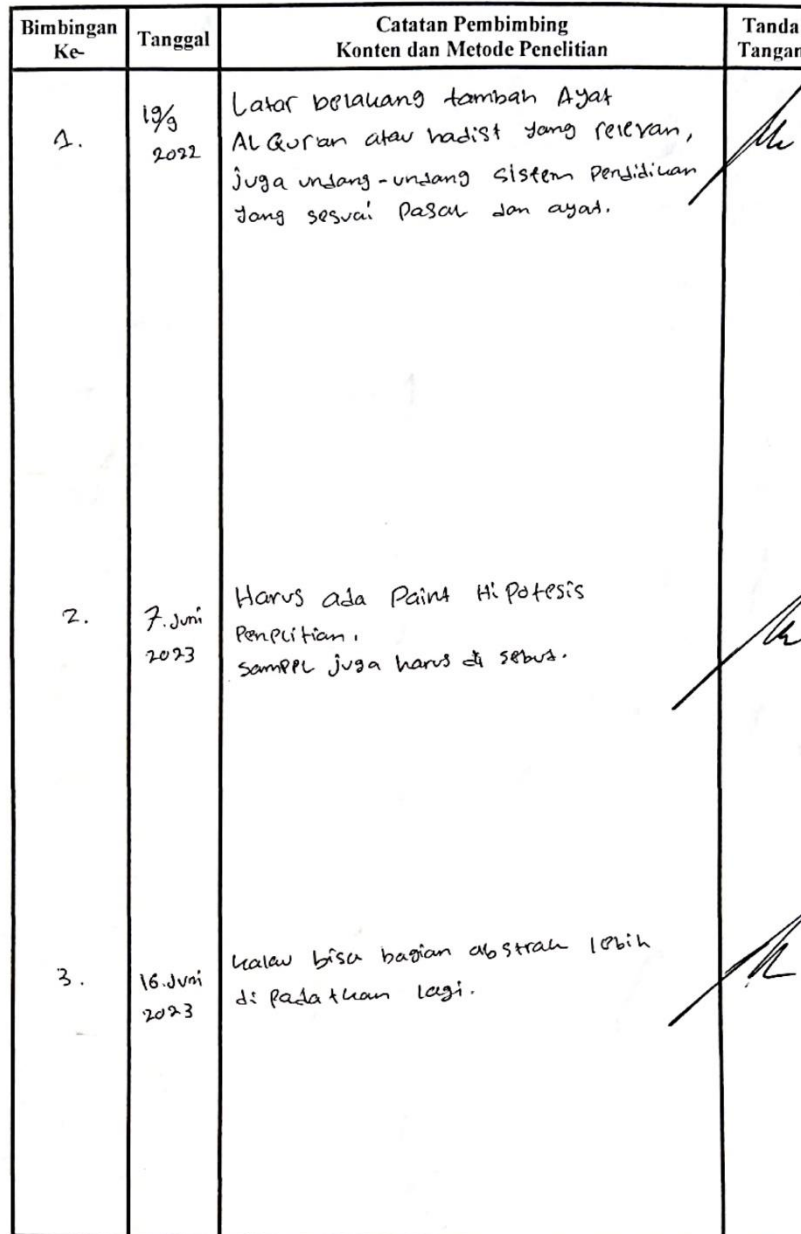 Bimbingan Ke-
Tanggal
Catatan Pembimbing
Konten dan Metode Penelitian
Tanda Tangan
1.
19/9
2022
Latar belakang tambah Ayat
Al Qur'an atau hadist yang relevan,
juga undang-undang sistem Pendidikan
yang sesuai Pasal dan ayat.
2.
7. Juni
2023
Harus ada Paint Hipotesis
Penelitian.
Sampel juga harus di sebut.
3.
16. Juni
2023
kalau bisa bagian abstrak lebih
di padatkan lagi.